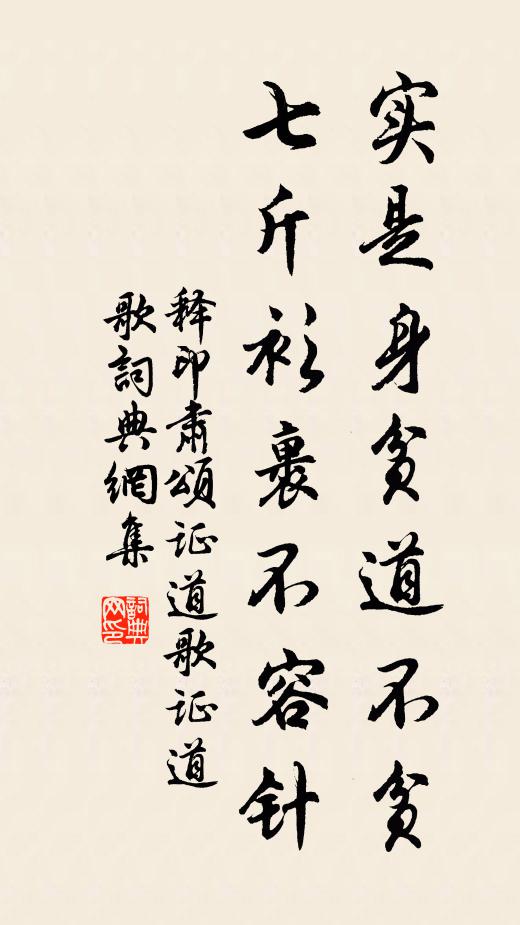 实是身贫道不贫
七斤衫裹不容针
释印肃颂证道歌证道
歌詞典網集
詞典
网印